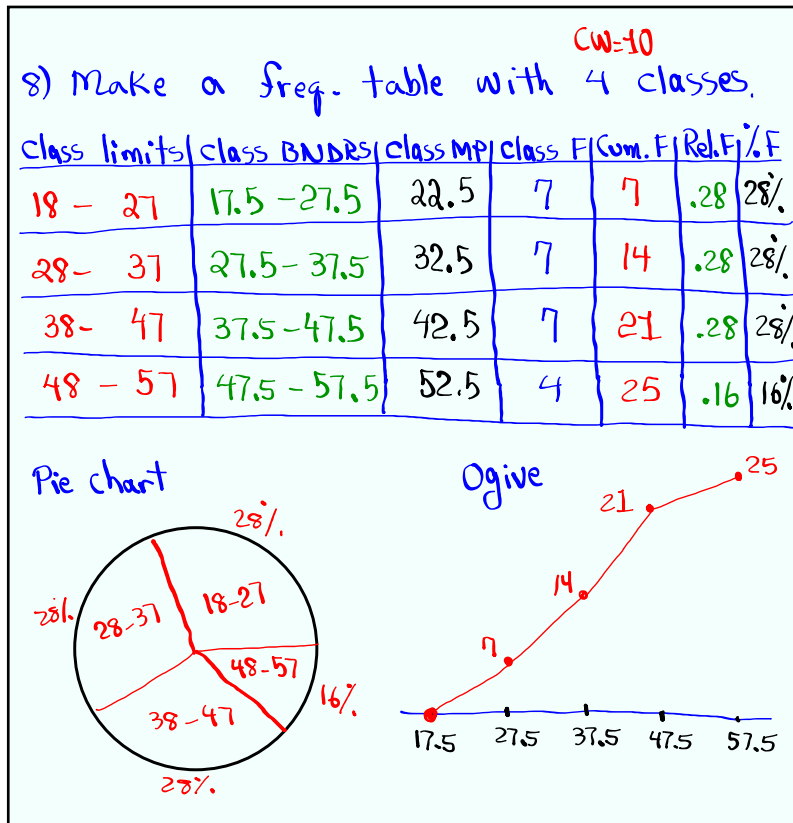 CW=10
8) Make a freq. table with 4 classes.
Class limits Class BNDRS Class MP Class F Cum. F Rel.F % F
18 - 27 17.5 - 27.5 22.5 7 7 .28 28%
28 - 37 27.5 - 37.5 32.5 7 14 .28 28%
38 - 47 37.5 - 47.5 42.5 7 21 .28 28%
48 - 57 47.5 - 57.5 52.5 4 25 .16 16%
Pie chart
28%
28%
28-37
18-27
48-57
38-47
16%
28%
Ogive
25
21
14
7
17.5 27.5 37.5 47.5 57.5